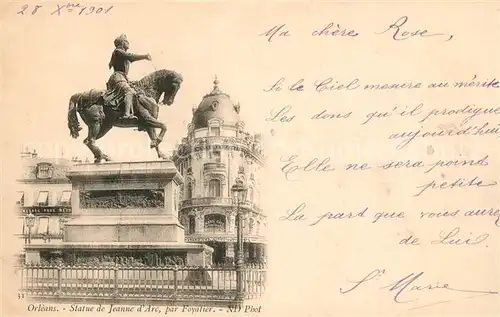 28 Xbre 1901
Ma chère Rose,
Si le Ciel mesure au mérite
Les dons qu'il prodigue
aujourd'hui
Elle ne sera point
petite
La part que vous aurez
de Lui.
Sr Marie
53
Orléans. - Statue de Jeanne d'Arc, par Foyatier. - ND Phot